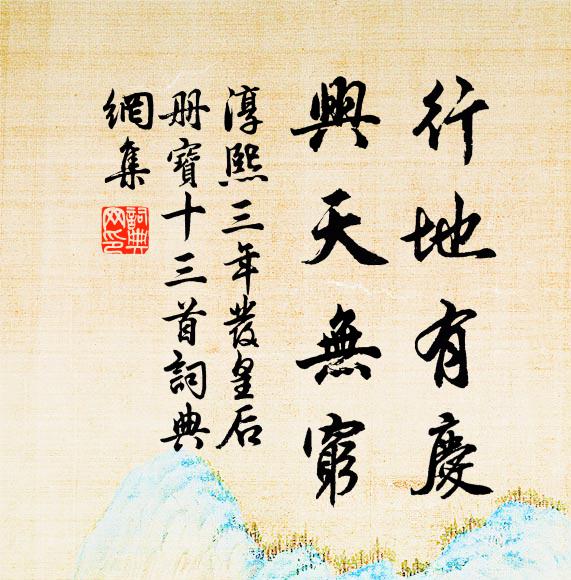 行地有慶
興天無窮
淳熙三年發皇后
册寶十三首詞典
網集
詞典網印